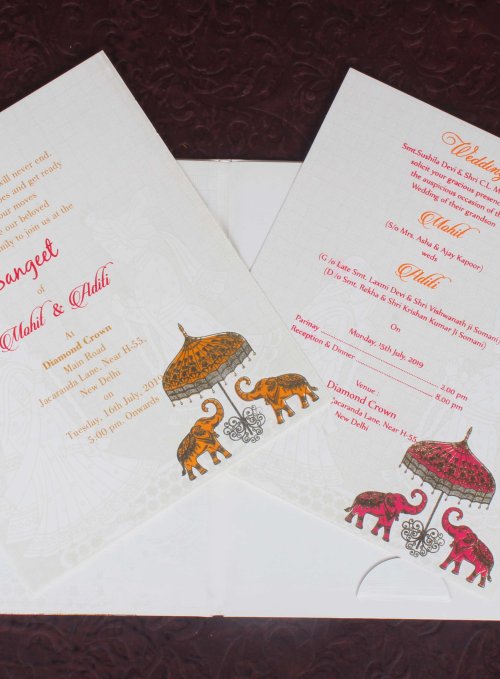 will never end,
and get ready
your moves
our beloved
family to join us at the
Sangeet
of
Mohit & Aditi
At
Diamond Crown
Main Road
Jacaranda Lane, Near H-55,
New Delhi
on
Tuesday, 16th July, 201
5.00 pm. Onwards
Wedding
Smt.Sushila Devi & Shri C.L. M
solicit your gracious presen
the auspicious occasion of
Wedding of their grandson
Mohit
(S/o Mrs. Asha & Ajay Kapoor)
weds
Aditi
(G/o Late Smt. Laxmi Devi & Shri Vishwanath ji Somani
(D/o Smt. Rekha & Shri Krishan Kumar Ji Somani)
On
Monday, 15th July, 2019
Parinay ........ 2.00 pm
Reception & Dinner ........ 8.00 pm
Venue :
Diamond Crown
Jacaranda Lane, Near H-55
New Delhi